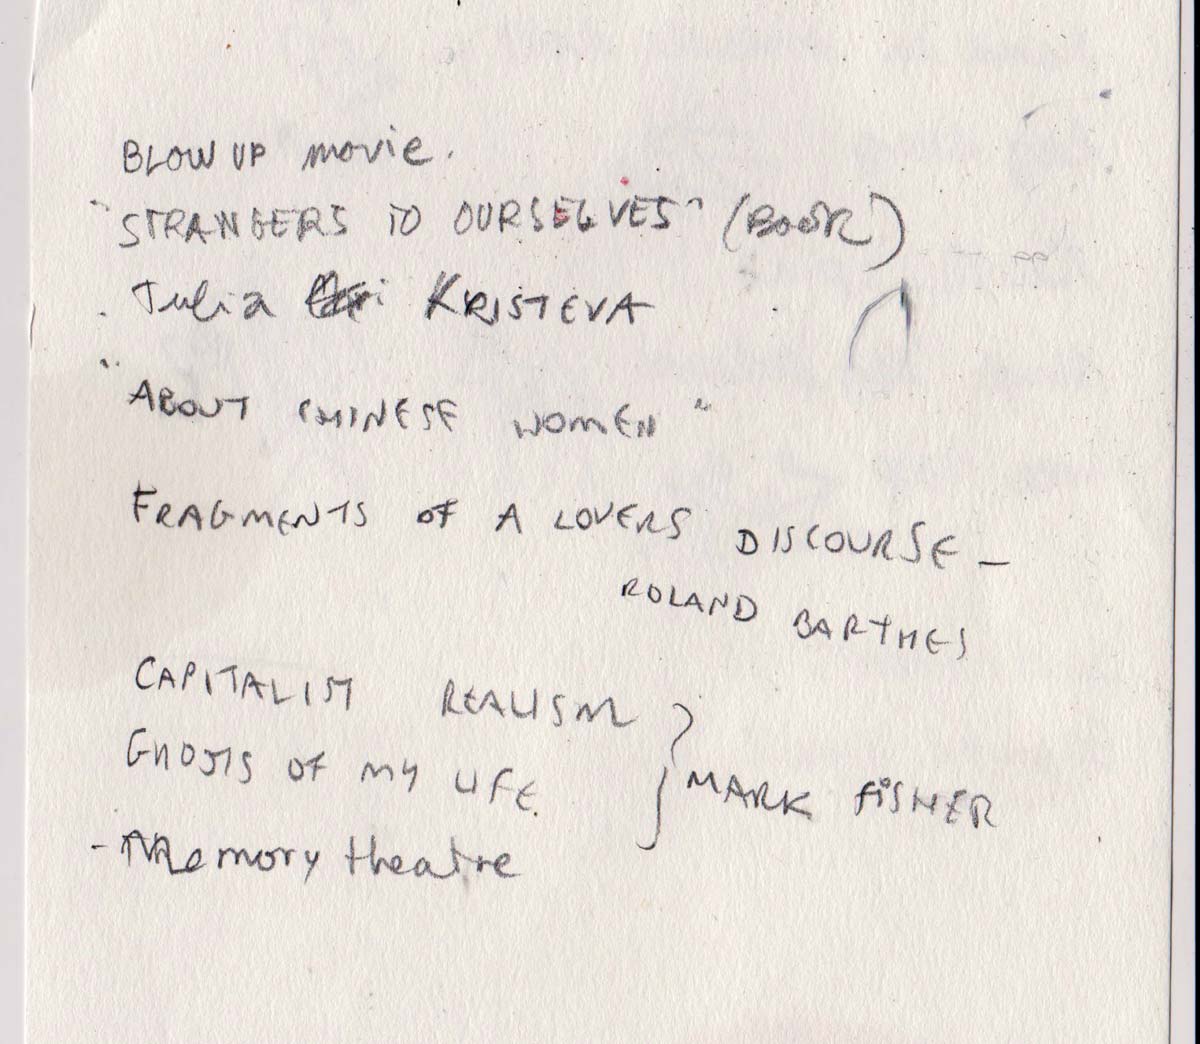 BLOW UP movie.
"STRANGERS TO OURSELVES" (BOOK)
. Julia KRISTEVA
"ABOUT CHINESE WOMEN"
FRAGMENTS OF A LOVERS DISCOURSE –
ROLAND BARTHES
CAPITALIST REALISM
GHOSTS OF MY LIFE.
} MARK FISHER
- Memory theatre